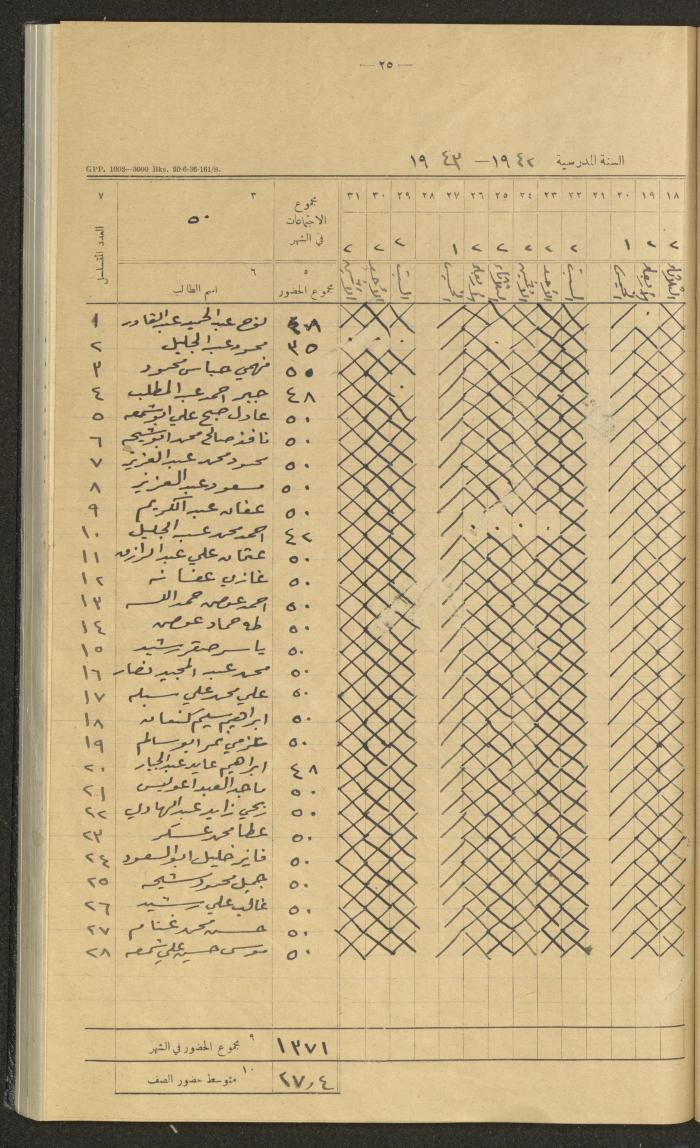 — ٢٥ —
السنة المدرسية ١٩٤٢ — ١٩٤٣
GPP. 1002—3000 Bks. 20-6-36-161/S.
١٨ ١٩ ٢٠ ٢١ ٢٢ ٢٣ ٢٤ ٢٥ ٢٦ ٢٧ ٢٨ ٢٩ ٣٠ ٣١ مجموع الاجتماعات في الشهر ٣ ٥٠ ٧ العدد المتسلسل
٢ ٢ ١ ٢ ٢ ٢ ٢ ٢ ١ ٢ ٢ ٢
الثلاثاء الأربعاء الخميس السبت الأحد الاثنين الثلاثاء الأربعاء الخميس السبت الأحد الاثنين ٥ مجموع الحضور ٦ اسم الطالب
٤٨ عبد الحميد عبد القادر ١
٣٥ محمود عبد الجليل ٢
٥٠ فهمي عباس محمود ٣
٤٨ جبر احمد عبد المطلب ٤
٥٠ عادل صبح علي ابو شمعه ٥
٥٠ نافذ صالح محمد ابو شيخه ٦
٥٠ محمود محمد عبد العزيز ٧
٥٠ مسعود عبد العزيز ٨
٥٠ عفان عبد الكريم ٩
٤٢ احمد محمد عبد الجليل ١٠
٥٠ عثمان علي عبد الرازق ١١
٥٠ غازي عفانه ١٢
٥٠ احمد عوض حمد الله ١٣
٥٠ طه حماد عوض ١٤
٥٠ ياسر صقر رشيد ١٥
٥٠ محمد عبد المجيد نصار ١٦
٥٠ علي محمد علي ١٧
٥٠ ابراهيم سليم كنعان ١٨
٥٠ عزمي عمر ابو سالم ١٩
٤٨ ابراهيم عايد عبد الجبار ٢٠
٥٠ ماجد العبد ٢١
٥٠ ربحي زايد عبد الهادي ٢٢
٥٠ عطا محمد عسكر ٢٣
٥٠ فايز خليل ابو السعود ٢٤
٥٠ جميل محمود شيخه ٢٥
٥٠ غالب علي رشيد ٢٦
٥٠ حسن محمد غنام ٢٧
٥٠ موسى حسين علي شمعه ٢٨
١٣٧١ ٩ مجموع الحضور في الشهر
٢٧٫٤ ١٠ متوسط حضور الصف